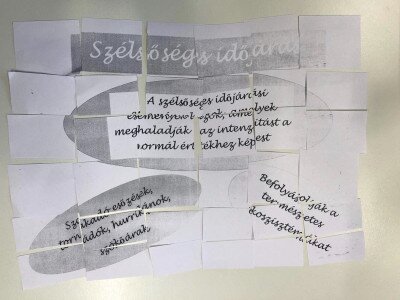 Szélsőséges időjárás
A szélsőséges időjárási
események azok, amelyek
meghaladják az intenzitást a
normál értékhez képest
Szakadó esőzések,
tornádók, hurrikánok,
szökőárak
Befolyásolják a
természetes
ökoszisztémákat